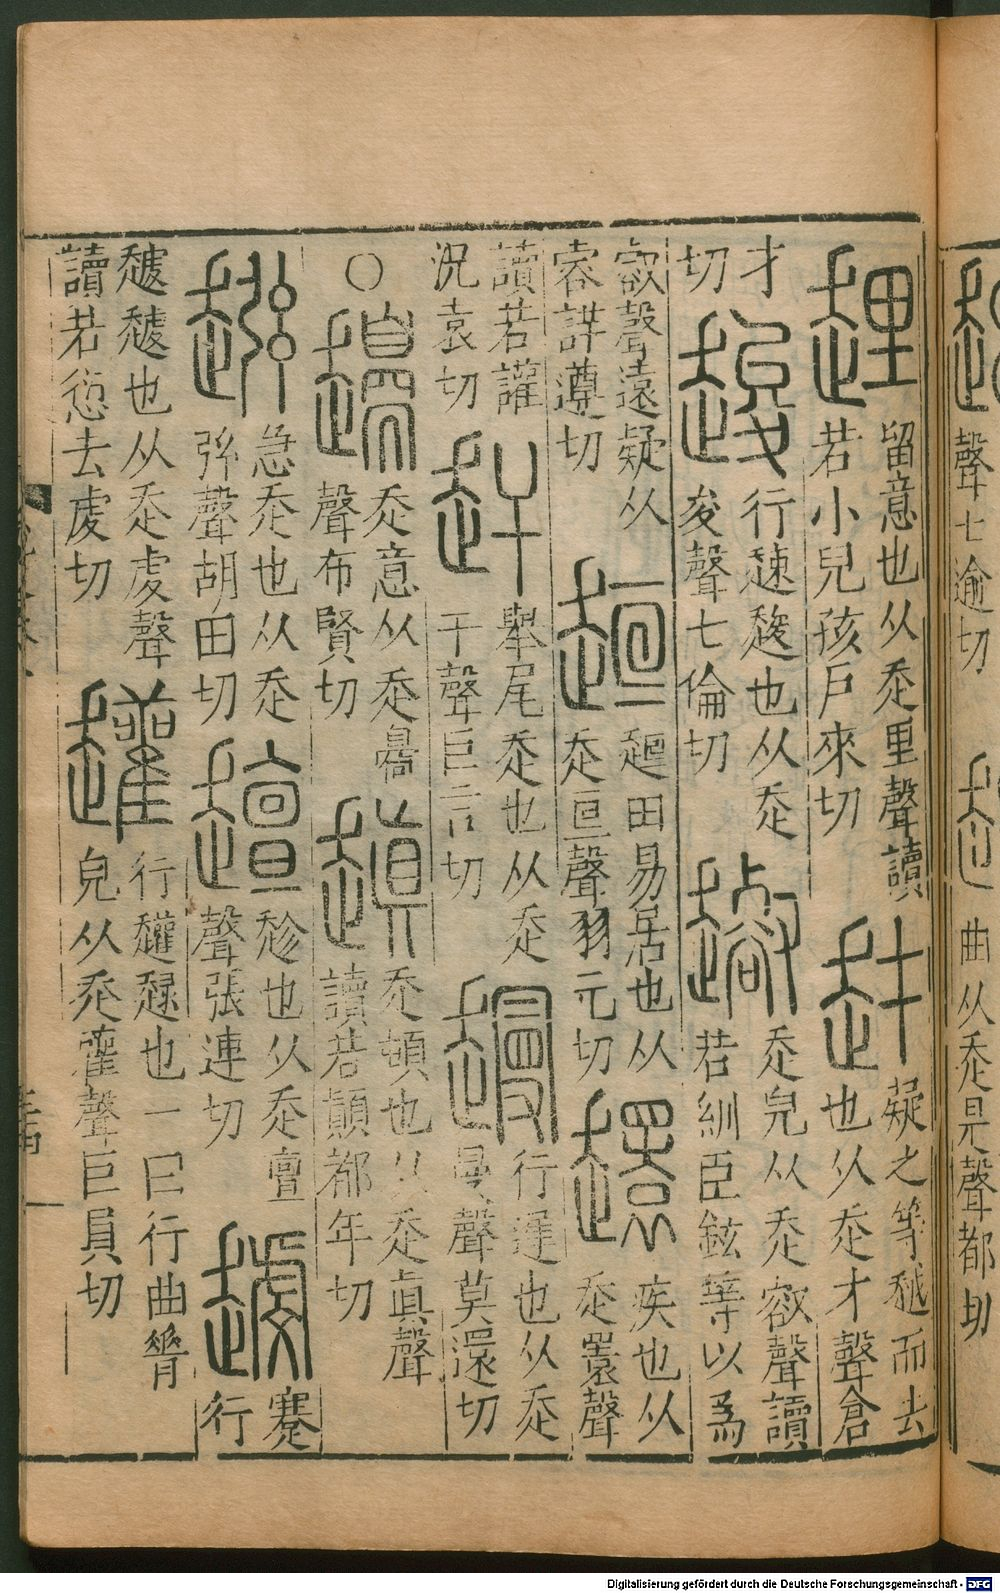 聲七逾切
曲从走是聲都
切
𧻲
留意也从走里聲讀
若小兒孩戶來切
𧺆
疑之等𧺆而去
也从走才聲倉
才
切
行速
也从走
夋聲七倫切
走皃从走叡聲讀
若紃臣鉉等以為
叡聲遠疑从
睿詳遵切
趄田易居也从
走亘聲羽元切
疾也从
走睘聲
讀若讙
況袁切
赶
舉尾走也从走
干聲巨言切
行遲也从走
曼聲莫還切
○
走意从走臱
聲布賢切
走頓也从走眞聲
讀若顚都年切
急走也从走
弦聲胡田切
趁也从走亶
聲張連切
蹇
行
也从走虔聲
讀若愆去虔切
行趢也一曰行曲脊
皃从走雚聲巨員切
Digitalisierung gefördert durch die Deutsche Forschungsgemeinschaft - DFG